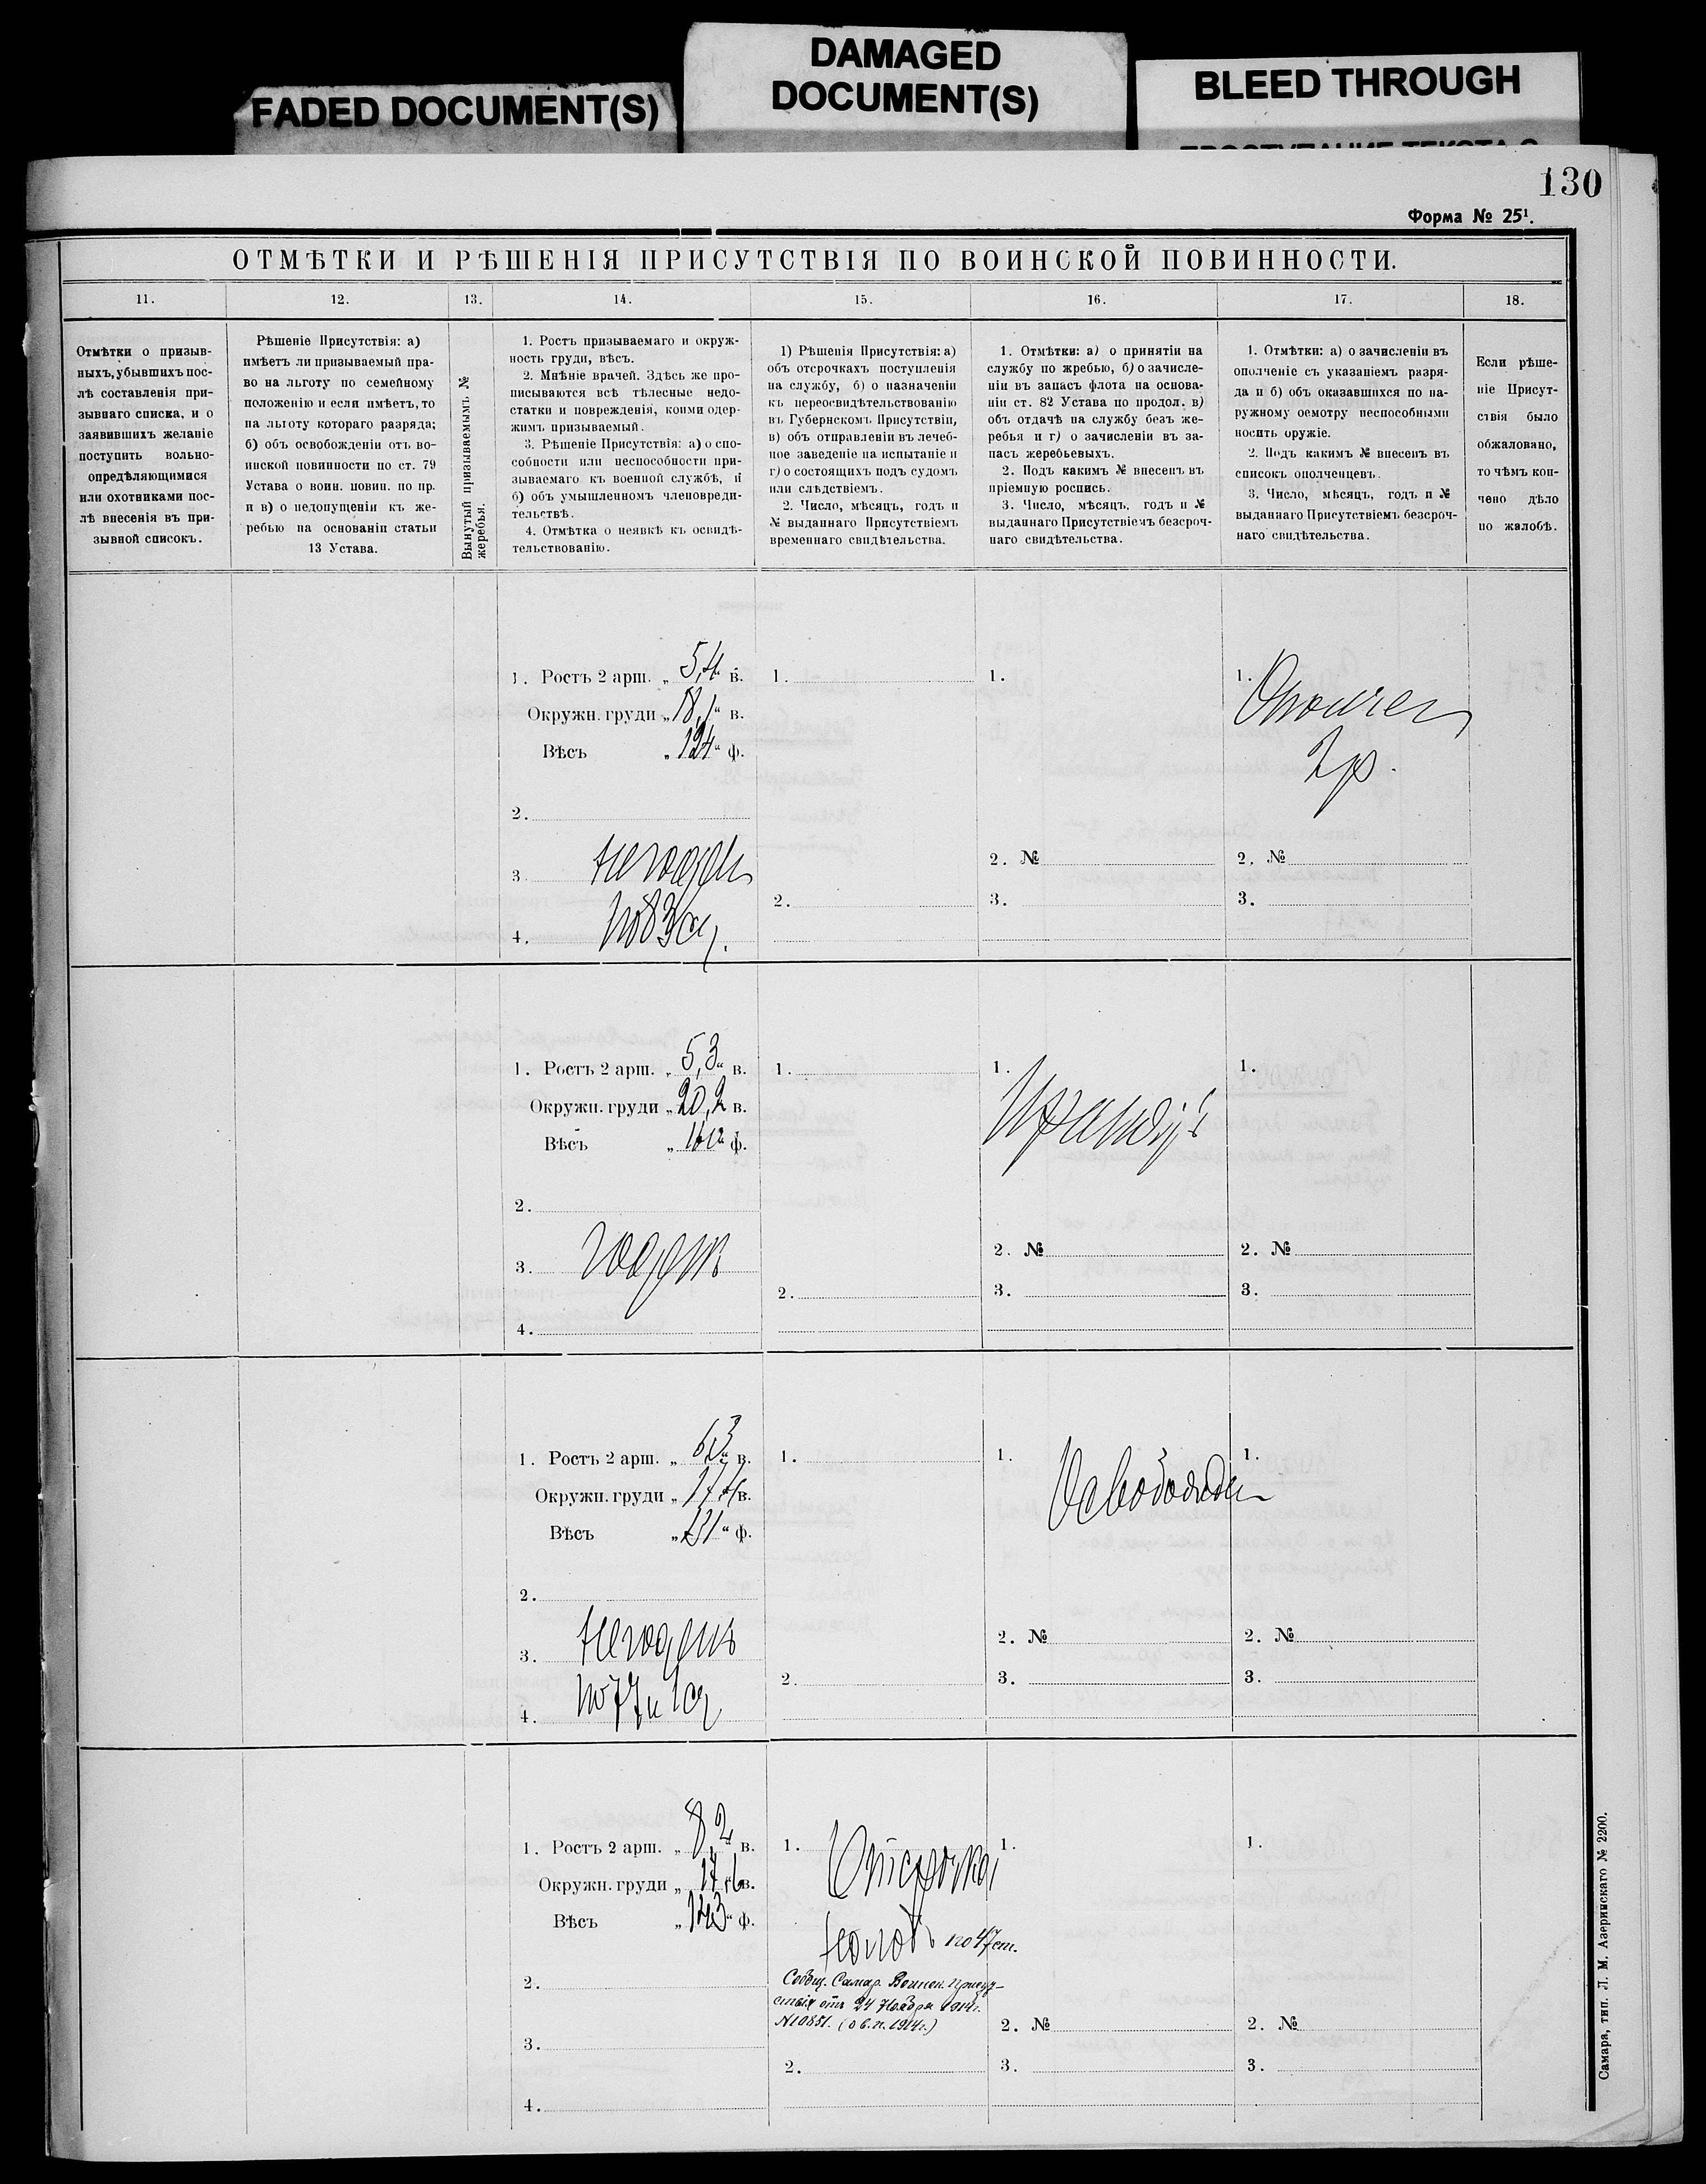 FADED DOCUMENT(S)
DAMAGED
DOCUMENT(S)
BLEED THROUGH
130
Форма № 25¹.
ОТМѢТКИ И РѢШЕНІЯ ПРИСУТСТВІЯ ПО ВОИНСКОЙ ПОВИННОСТИ.
11.
12.
13.
14.
15.
16.
17.
18.
Отмѣтки о призыв-
ныхъ, убывшихъ пос-
лѣ составленія при-
зывнаго списка, и о
заявившихъ желаніе
поступить вольно-
опредѣляющимися
или охотниками пос-
лѣ внесенія въ при-
зывной списокъ.
Рѣшеніе Присутствія: а)
имѣетъ ли призываемый пра-
во на льготу по семейному
положенію и если имѣетъ, то
на льготу котораго разряда;
б) объ освобожденіи отъ во-
инской повинности по ст. 79
Устава о воин. повин. по пр.
и в) о недопущеніи къ же-
ребью на основаніи статьи
13 Устава.
Вынутый призываемымъ №
жеребья.
1. Ростъ призываемаго и окруж-
ность груди, вѣсъ.
2. Мнѣніе врачей. Здѣсь же про-
писываются всѣ тѣлесные недо-
статки и поврежденія, коими одер-
жимъ призываемый.
3. Рѣшеніе Присутствія: а) о спо-
собности или неспособности при-
зываемаго къ военной службѣ, и
б) объ умышленномъ членовреди-
тельствѣ.
4. Отмѣтка о неявкѣ къ освидѣ-
тельствованію.
1) Рѣшенія Присутствія: а)
объ отсрочкахъ поступленія
на службу, б) о назначеніи
къ переосвидѣтельствованію
въ Губернскомъ Присутствіи,
в) объ отправленіи въ лечеб-
ное заведеніе на испытаніе и
г) о состоящихъ подъ судомъ
или слѣдствіемъ.
2. Число, мѣсяцъ, годъ и
№ выданнаго Присутствіемъ
временнаго свидѣтельства.
1. Отмѣтки: а) о принятіи на
службу по жребью, б) о зачисле-
ніи въ запасъ флота на основа-
ніи ст. 82 Устава по продол. в)
объ отдачѣ на службу безъ же-
ребья и г) о зачисленіи въ за-
пасъ жеребьевыхъ.
2. Подъ какимъ № внесенъ въ
пріемную роспись.
3. Число, мѣсяцъ, годъ и №
выданнаго Присутствіемъ безсроч-
наго свидѣтельства.
1. Отмѣтки: а) о зачисленіи въ
ополченіе съ указаніемъ разря-
да и б) объ оказавшихся по на-
ружному осмотру неспособными
носить оружіе.
2. Подъ какимъ № внесенъ въ
списокъ ополченцевъ.
3. Число, мѣсяцъ, годъ и №
выданнаго Присутствіемъ безсроч-
наго свидѣтельства.
Если рѣше-
ніе Присут-
ствія было
обжаловано,
то чѣмъ кон-
чено дѣло
по жалобѣ.
1. Ростъ 2 арш. „ 5,4 “ в.
Окружн. груди „ 18,1 “ в.
Вѣсъ „ 124 “ ф.
2.
3. Негоденъ
4. по 83 ст.
1.
2.
1.
2. №
3.
1. Ополчен
2 р.
2. №
3.
1. Ростъ 2 арш. „ 5,3 “ в.
Окружн. груди „ 20,2 в.
Вѣсъ „ ф.
2.
3. Годенъ
4.
1.
2.
1.
2. №
3.
1.
2. №
3.
1. Ростъ 2 арш. „ 6,3 “ в.
Окружн. груди „ 17,4 в.
Вѣсъ „ 131 “ ф.
2.
3. Негоденъ
4. по 77 и 1 ст
1.
2.
1. Освобожден
2. №
3.
1.
2. №
3.
1. Ростъ 2 арш. „ 8,2 “ в.
Окружн. груди „ 17,6 в.
Вѣсъ „ 143 “ ф.
2.
3.
4.
1. Отсрочка
по 47 ст.
Сообщ. Самар. Воинск. Присут-
ствія отъ 24 Ноября 1914 г.
№ 10851. (о в. п. 1914 г.)
2.
1.
2. №
3.
1.
2. №
3.
Самара, тип. Л. М. Азеринскаго № 2200.